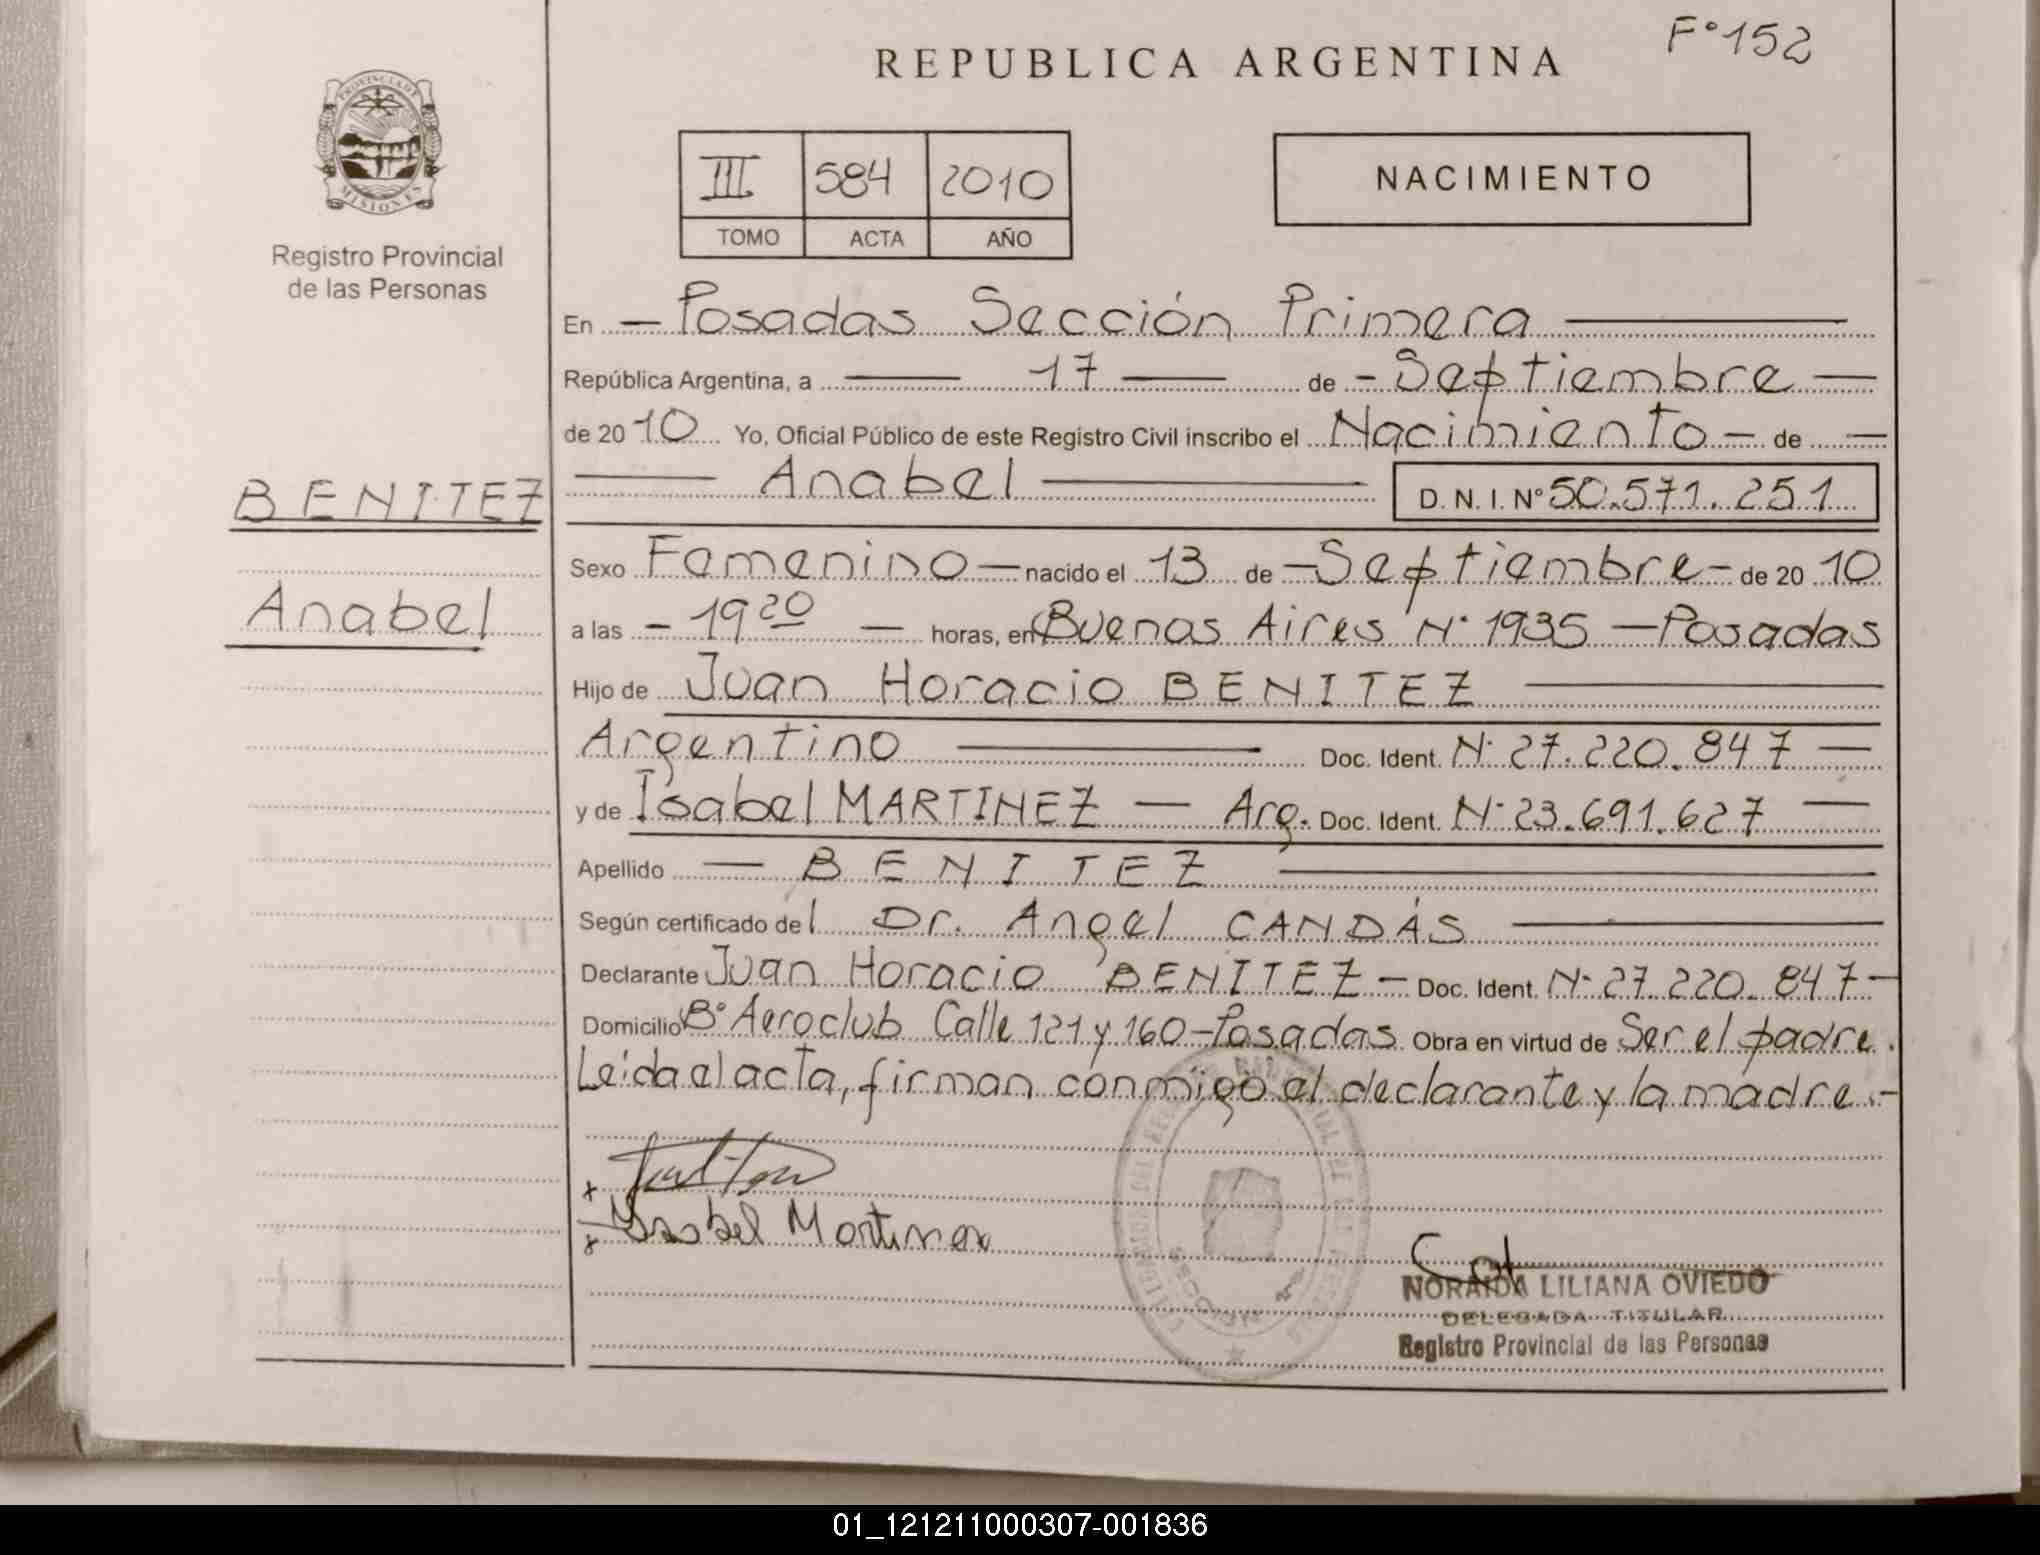 F° 152
REPUBLICA ARGENTINA
PROVINCIA DE
MISIONES
Registro Provincial
de las Personas
III 584 2010
TOMO ACTA AÑO
NACIMIENTO
En - Posadas Sección Primera
República Argentina, a 17 de - Septiembre -
de 2010 Yo, Oficial Público de este Registro Civil inscribo el Nacimiento - de -
Anabel D. N. I. N° 50.571.251
BENITEZ
Anabel
Sexo Femenino - nacido el 13 de - Septiembre - de 2010
a las - 19 20 - horas, en Buenos Aires N° 1935 - Posadas
Hijo de Juan Horacio BENITEZ
Argentino Doc. Ident. N° 27.220.847 -
y de Isabel MARTINEZ - Arg. Doc. Ident. N° 23.691.627 -
Apellido - BENITEZ
Según certificado del Dr. Angel CANDÁS
Declarante Juan Horacio BENITEZ - Doc. Ident. N° 27.220.847 -
Domicilio B° Aeroclub Calle 121 y 160 - Posadas Obra en virtud de Ser el padre.
Leída el acta, firman conmigo el declarante y la madre.-
x
x Isabel Martinez
NORAIDA LILIANA OVIEDO
DELEGADA TITULAR
Registro Provincial de las Personas
01_121211000307-001836